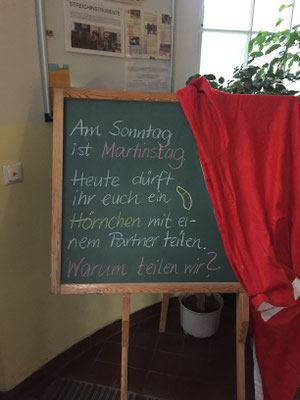 STREICHINSTRUMENTE
Am Sonntag
ist Martinstag.
Heute dürft
ihr euch ein
Hörnchen mit ei-
nem Partner teilen.
Warum teilen wir?